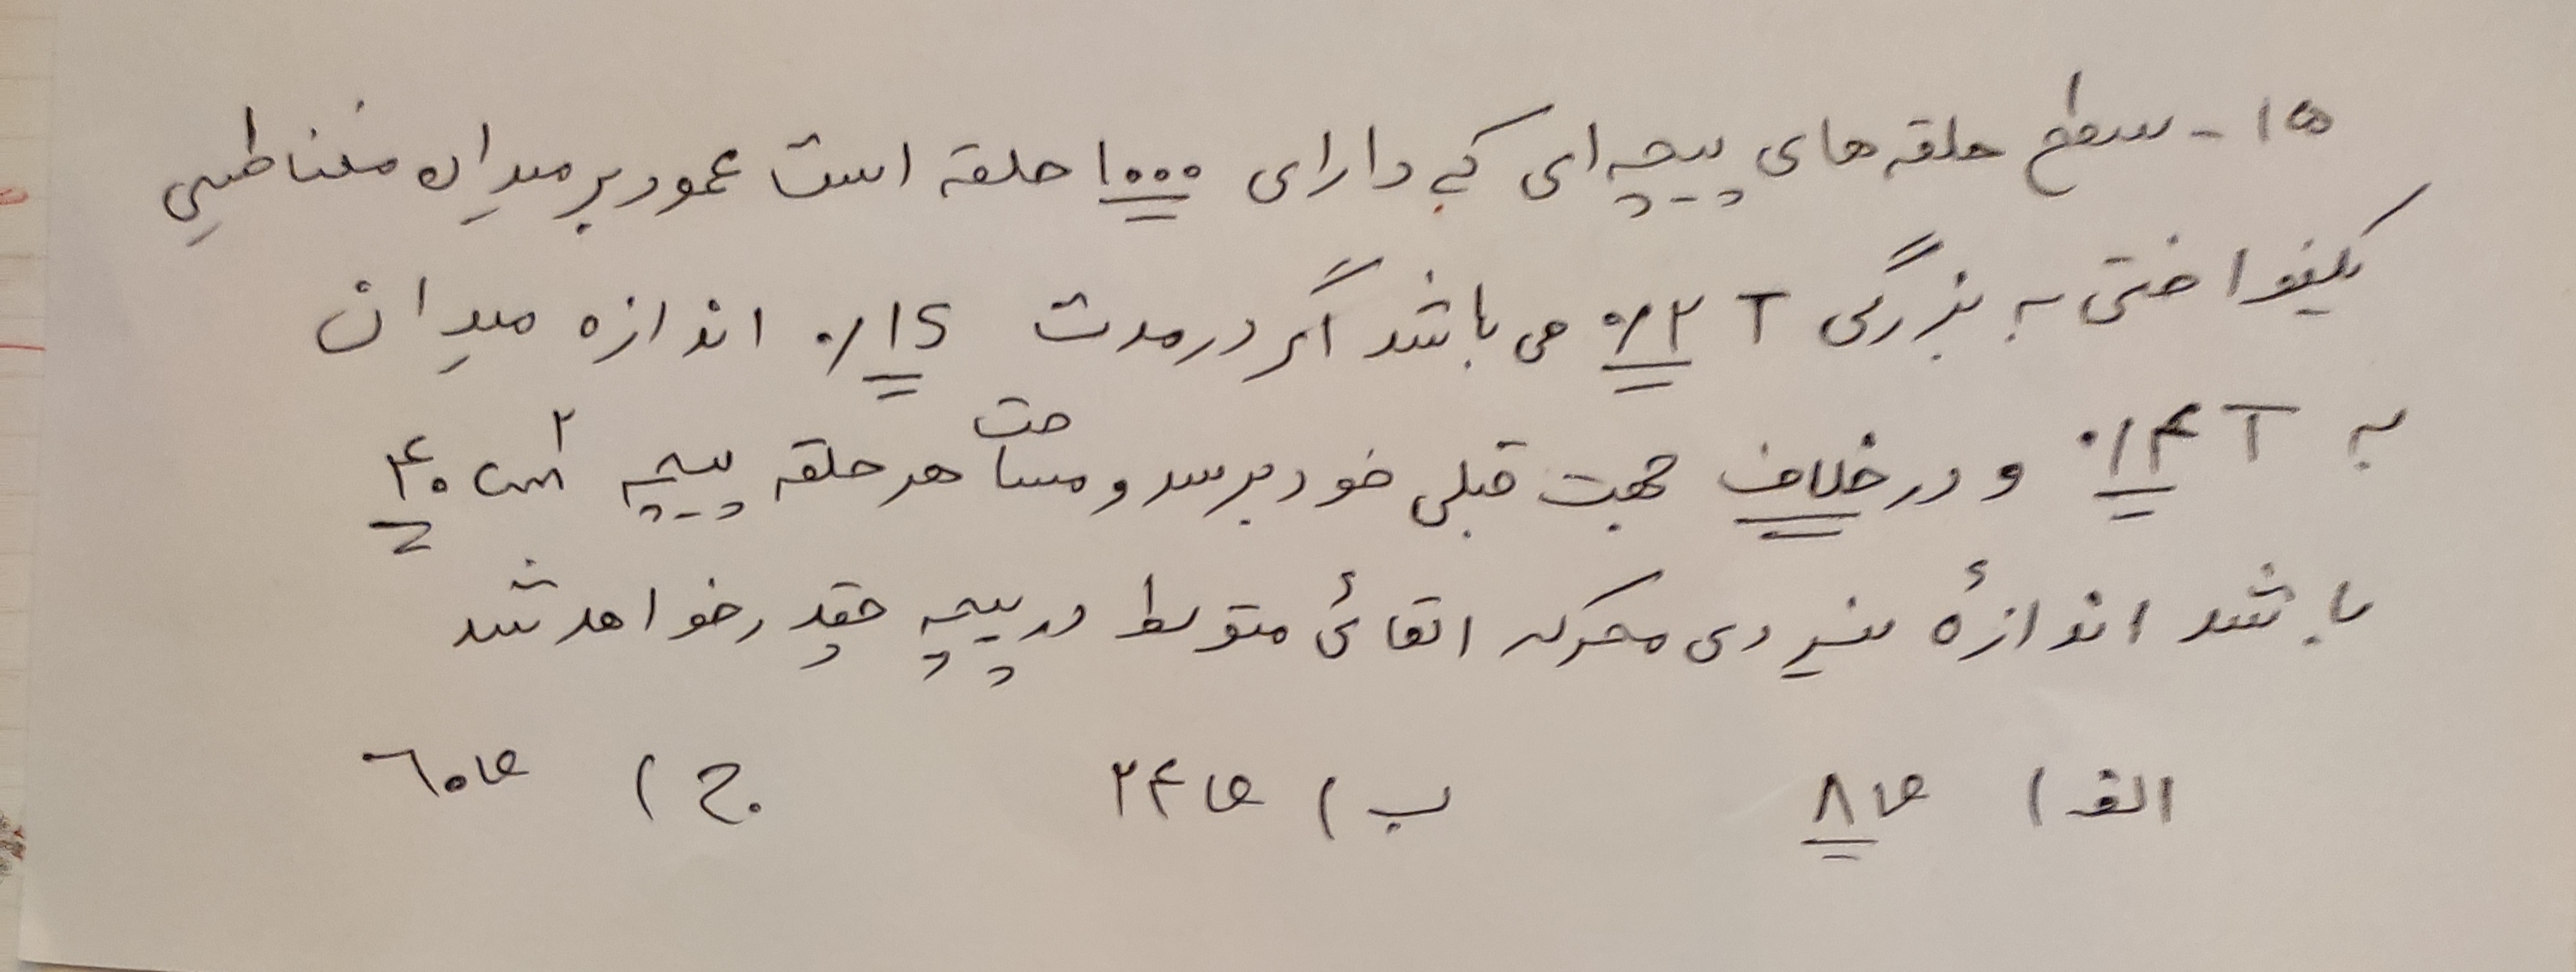 ۱۵- سطح حلقه های پیچه ای که دارای ۱۰۰۰ حلقه است عمود بر میدان مغناطیسی
یکنواختی به بزرگی ۰/۲ T می باشد اگر در مدت ۰/۱ s اندازه میدان
به ۰/۴ T و در خلاف جهت قبلی خود برسد و مساحت هر حلقه پیچه ۴۰ cm^۲
باشد اندازۀ نیروی محرکه القائی متوسط در پیچه چقدر خواهد شد
الف) ۸ V ب) ۲۴ V ج) ۶۰ V